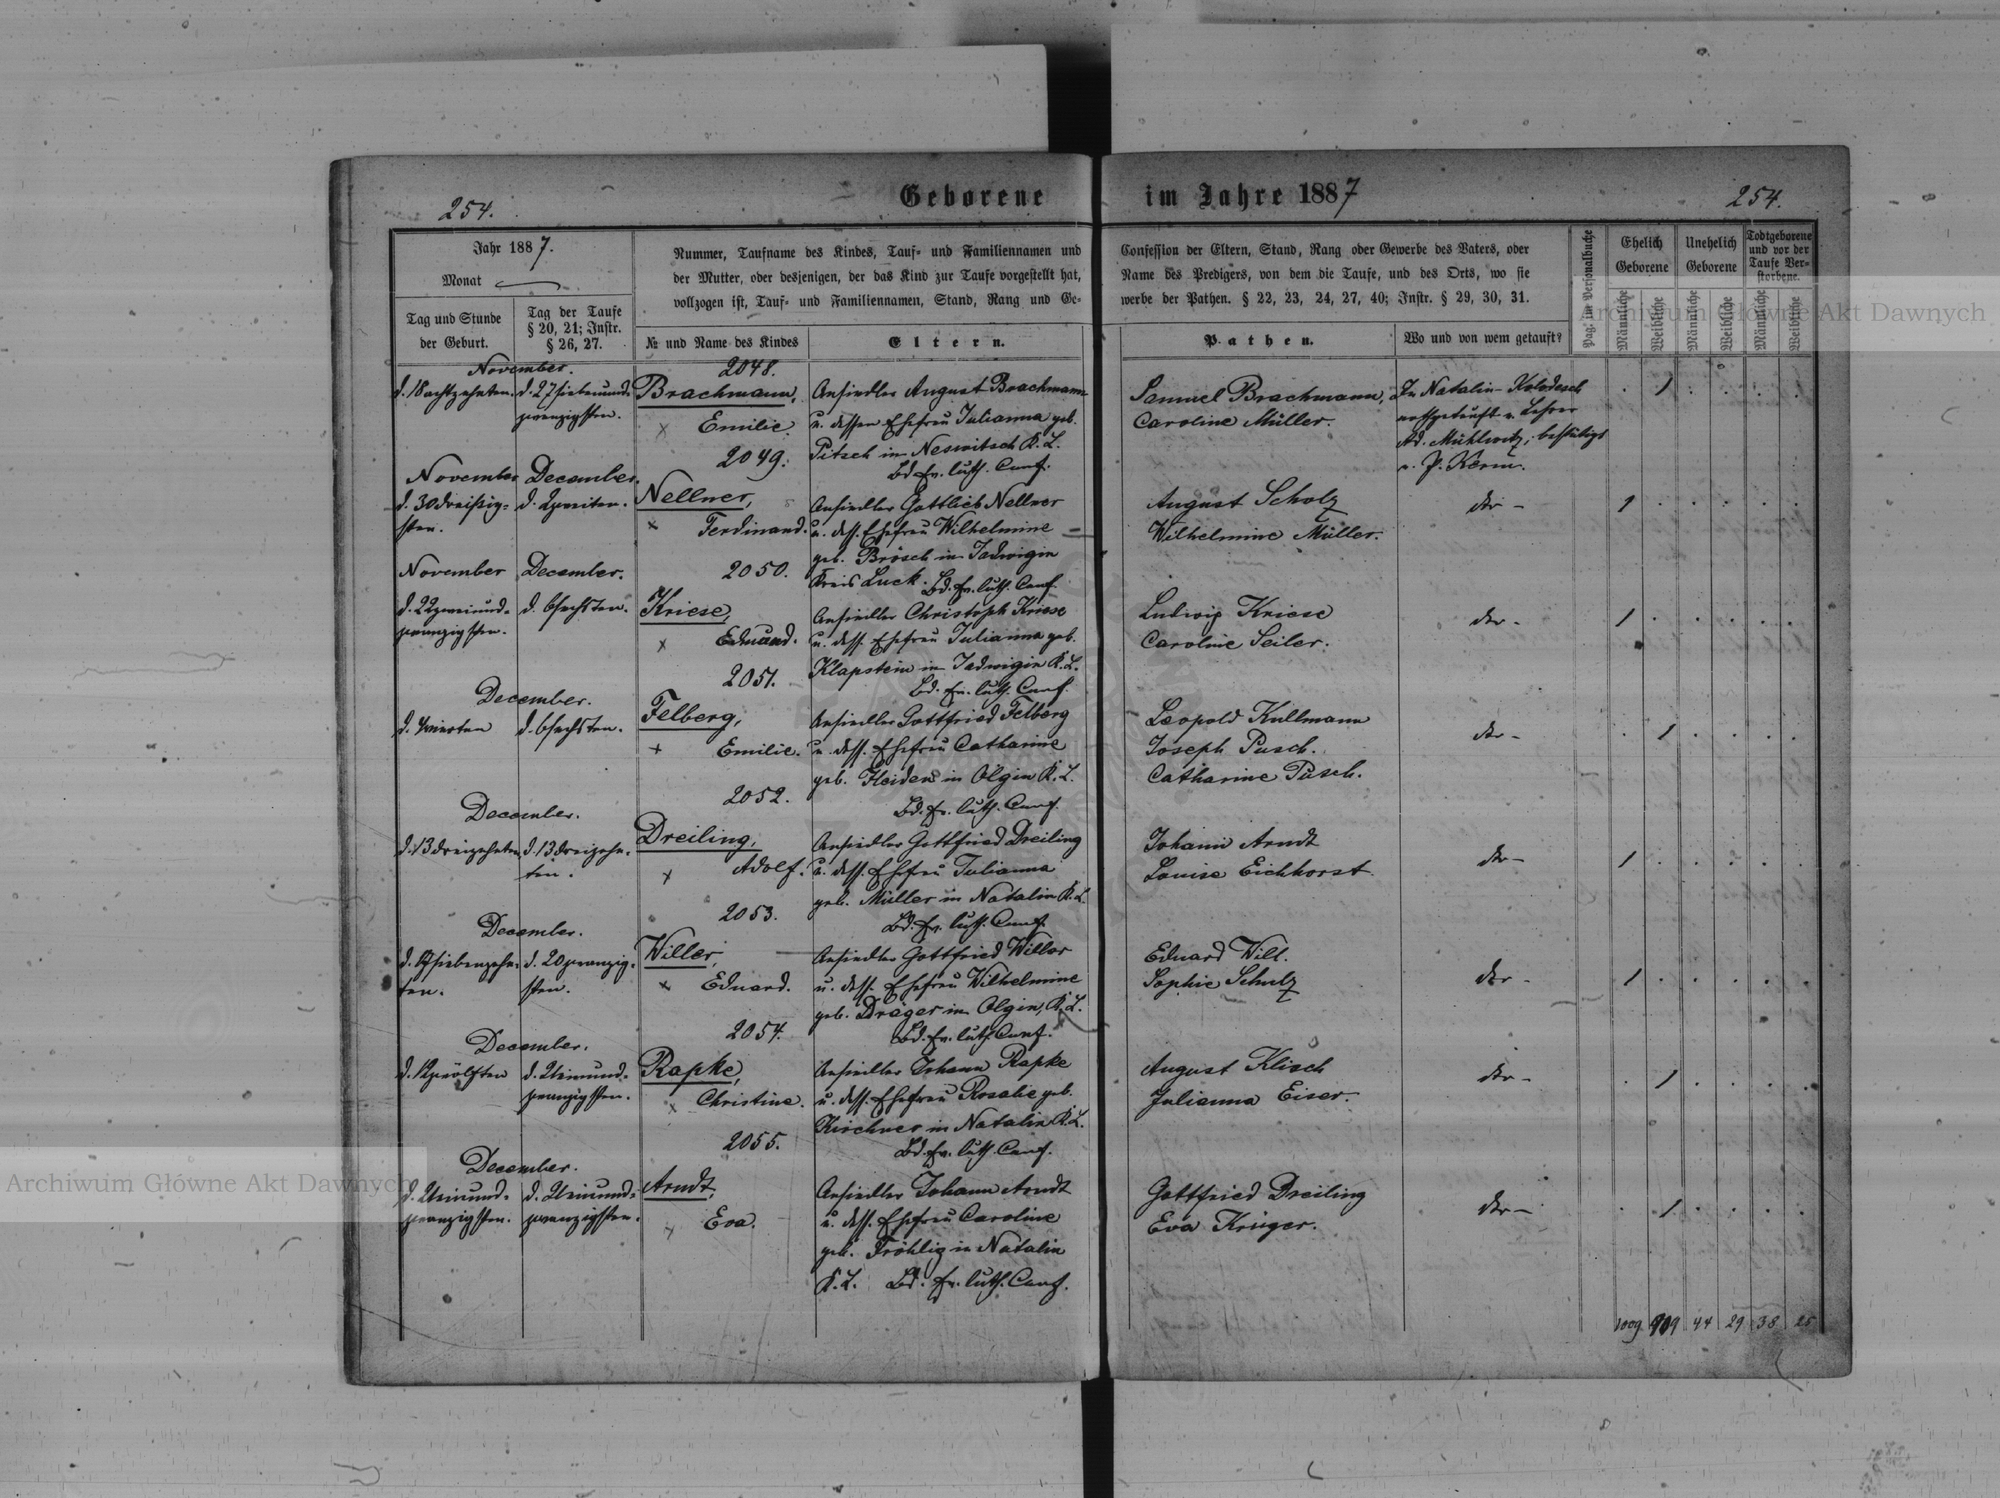 254.
Geborene
im Jahre 1887
254.
Jahr 1887.
Monat
Tag und Stunde
der Geburt.
Tag der Taufe
§ 20, 21; Instr.
§ 26, 27.
Nummer, Taufname des Kindes, Tauf- und Familiennamen und
der Mutter, oder desjenigen, der das Kind zur Taufe vorgestellt hat,
vollzogen ist, Tauf- und Familiennamen, Stand, Rang und Ge-
№ und Name des Kindes
Eltern.
Confession der Eltern, Stand, Rang oder Gewerbe des Vaters, oder
Name des Predigers, von dem die Taufe, und des Orts, wo sie
werbe der Pathen. § 22, 23, 24, 27, 40; Instr. § 29, 30, 31.
Pathen.
Wo und von wem getauft?
Pag. im Personalbuche
Ehelich
Geborene
Unehelich
Geborene
Todtgeborene
und vor der
Taufe Ver-
storbene.
Männliche
Weibliche
Männliche
Weibliche
Männliche
Weibliche
November.
d. 18 achtzehnten.
d. 27 siebenund-
zwanzigsten.
2048.
Brachmann,
Emilie.
Ansiedler August Brachmann
u. dessen Ehefrau Julianna geb.
Pitsch in Neswitsch K. L.
Bd. Ev. luth. Conf.
Samuel Brachmann,
Caroline Müller.
In Natalin-Kolodesch
nothgetauft v. Lehrer
Ad. Mühlwitz; bestätigt
v. P. Kerm.
1
November
d. 30 dreißig-
sten.
December.
d. 2 zweiten.
2049.
Nellner,
Ferdinand.
Ansiedler Gottlieb Nellner
u. dess. Ehefrau Wilhelmine
geb. Brösch in Jadwigin
Kreis Luck. Bd. Ev. luth. Conf.
August Scholz
Wilhelmine Müller.
dto -
1
November
d. 22 zweiund-
zwanzigsten.
December.
d. 6 sechsten.
2050.
Kriese,
Eduard.
Ansiedler Christoph Kriese
u. dess. Ehefrau Julianna geb.
Klapstein in Jadwigin K. L.
Bd. Ev. luth. Conf.
Ludwig Kriese
Caroline Seiler.
dto -
1
December.
d. 4 vierten
d. 6 sechsten.
2051.
Felberg,
Emilie.
Ansiedler Gottfried Felberg
u. dess. Ehefrau Catharine
geb. in Olgin K. L.
Bd. Ev. luth. Conf.
Leopold Kullmann
Joseph Pusch.
Catharine Pusch.
dto -
1
December.
d. 13 dreizehnten
d. 13 dreizehn-
ten.
2052.
Dreiling,
Adolf.
Ansiedler Gottfried Dreiling
u. dess. Ehefrau Julianna
geb. Müller in Natalin K. L.
Bd. Ev. luth. Conf.
Johann Arndt
Louise Eichhorst.
dto -
1
December.
d. 17 siebenzehn-
ten.
d. 20 zwanzig-
sten.
2053.
Willer,
Eduard.
Ansiedler Gottfried Willer
u. dess. Ehefrau Wilhelmine
geb. Dräger in Olgin, K. L.
Bd. Ev. luth. Conf.
Eduard Will.
Sophie Schulz
dto -
1
December.
d. 12 zwölften
d. 21 einund-
zwanzigsten.
2054.
Rapke,
Christine.
Ansiedler Johann Rapke
u. dess. Ehefrau Rosalie geb.
Kirchner in Natalin K. L.
Bd. Ev. luth. Conf.
August Klisch
Julianna Eiser.
dto -
1
December.
d. 21 einund-
zwanzigsten.
d. 21 einund-
zwanzigsten.
2055.
Arndt,
Eva.
Ansiedler Johann Arndt
u. dess. Ehefrau Caroline
geb. Fröhlig in Natalin
K. L. Bd. Ev. luth. Conf.
Gottfried Dreiling
Eva Krüger.
dto -
1
1009 909 44 29 38 25
Archiwum Główne Akt Dawnych
Archiwum Główne Akt Dawnych